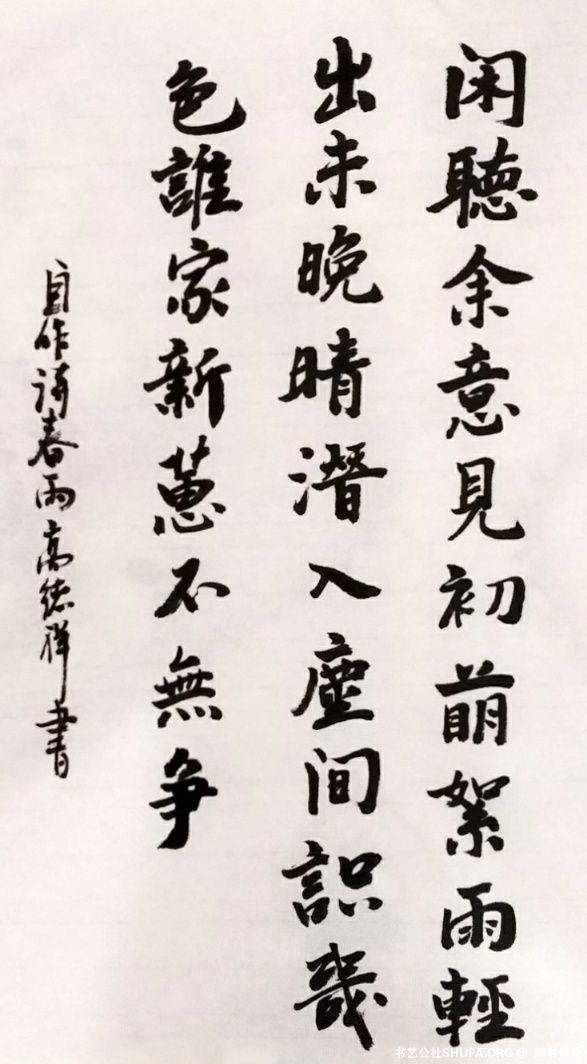 闲聽余意見初萌絮雨輕
出未晚晴潛入塵间識幾
色誰家新蕙不無争
自作诗春雨高德祥書
书艺公社SHUFA.ORG